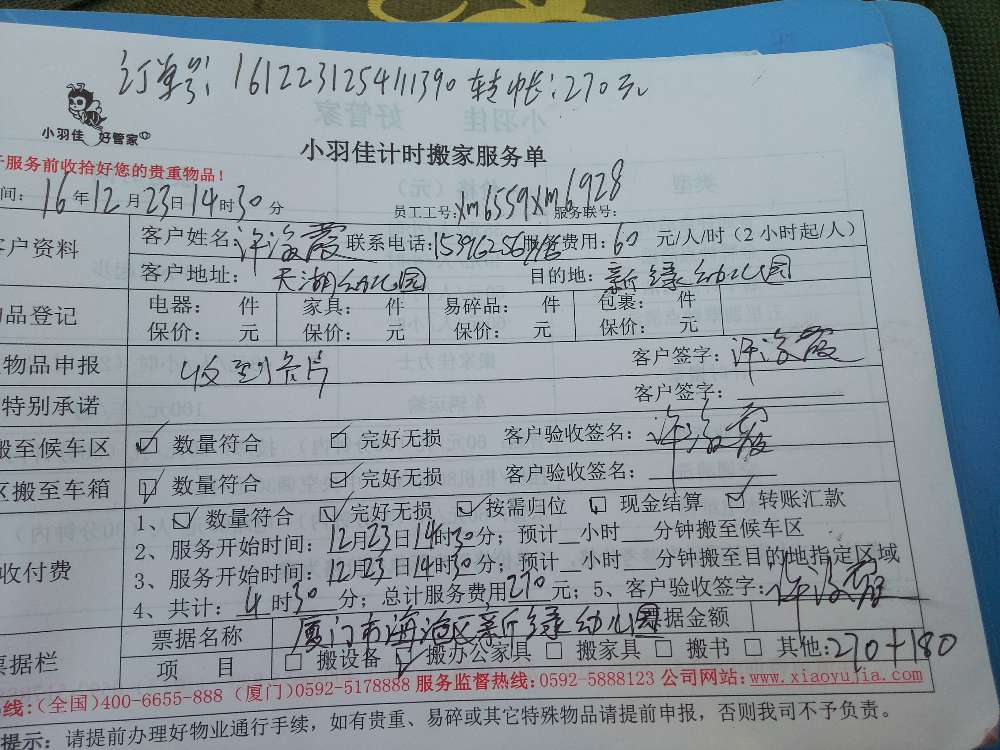 订单号: 161223125411390 转帐:270元
小羽佳 好管家
小羽佳计时搬家服务单
服务前收拾好您的贵重物品!
间: 16年12月23日14时30分 员工工号:xm6559 xm6928 服务联号:
客户资料 客户姓名: 联系电话: 服务费用: 60 元/人/时(2小时起/人)
客户地址: 天湖幼儿园 目的地: 新绿幼儿园
品登记 电器: 件 家具: 件 易碎品: 件 包裹: 件
保价: 元 保价: 元 保价: 元 保价: 元
物品申报 收到名片 客户签字:
特别承诺 客户签字:
搬至候车区 数量符合 完好无损 客户验收签名:
区搬至车箱 数量符合 完好无损 客户验收签名:
收付费 1、 数量符合 完好无损 按需归位 现金结算 转账汇款
2、服务开始时间:12月23日14时30分; 预计__小时___分钟搬至候车区
3、服务开始时间:12月23日14时30分; 预计__小时___分钟搬至目的地指定区域
4、共计: 4时30分; 总计服务费用270元; 5、客户验收签字:
票据栏 票据名称 厦门市海沧区新绿幼儿园 票据金额
项 目 搬设备 搬办公家具 搬家具 搬书 其他:270+180
线:(全国)400-6655-888 (厦门)0592-5178888 服务监督热线:0592-5888123 公司网站:www.xiaoyujia.com
提示: 请提前办理好物业通行手续,如有贵重、易碎或其它特殊物品请提前申报,否则我司不予负责。